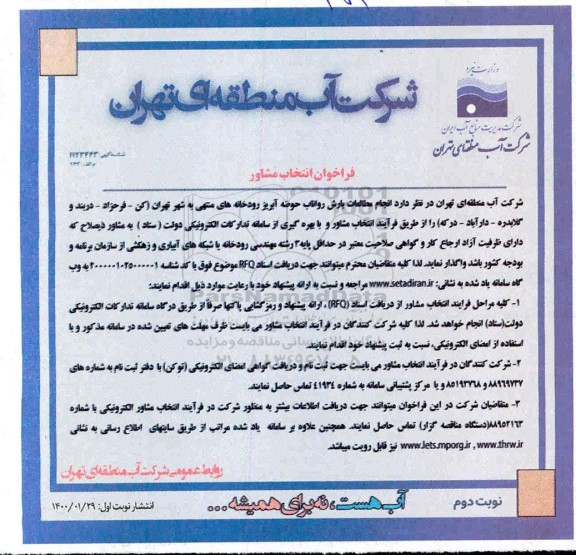 وزارت نیرو
شرکت مدیریت منابع آب ایران
شرکت آب منطقه‌ای تهران
شرکت آب منطقه‌ای تهران
شناسه آگهی: ۱۱۲۳۴۴۳
فراخوان انتخاب مشاور
شرکت آب منطقه‌ای تهران در نظر دارد انجام مطالعات بارش رواناب حوضه آبریز رودخانه های منتهی به شهر تهران (کن - فرحزاد - دربند و
گلابدره - دارآباد - درکه) را از طریق فرآیند انتخاب مشاور و با بهره گیری از سامانه تدارکات الکترونیکی دولت ( ستاد ) به مشاور ذیصلاح که
دارای ظرفیت آزاد ارجاع کار و گواهی صلاحیت معتبر در حداقل پایه ۳ رشته مهندسی رودخانه یا شبکه های آبیاری و زهکشی از سازمان برنامه و
بودجه کشور باشد واگذار نماید. لذا کلیه متقاضیان محترم میتوانند جهت دریافت اسناد RFQ موضوع فوق با کد شناسه ۲۰۰۰۰۰۱۰۲۵۰۰۰۰۰۱ به وب
گاه سامانه یاد شده به نشانی: www.setadiran.ir مراجعه و نسبت به ارائه پیشنهاد خود با رعایت موارد ذیل اقدام نمایند:
۱- کلیه مراحل فرایند انتخاب مشاور از دریافت اسناد (RFQ)، ارائه پیشنهاد و رمز گشایی پاکتها صرفا از طریق درگاه سامانه تدارکات الکترونیکی
دولت(ستاد) انجام خواهد شد. لذا کلیه شرکت کنندگان در فرآیند انتخاب مشاور می بایست ظرف مهلت های تعیین شده در سامانه مذکور و با
استفاده از امضای الکترونیکی، نسبت به ثبت پیشنهاد خود اقدام نمایند.
۲- شرکت کنندگان در فرآیند انتخاب مشاور می بایست جهت ثبت نام و دریافت گواهی امضای الکترونیکی (توکن) با دفتر ثبت نام به شماره های
۸۸۹۶۹۷۳۷ و ۸۵۱۹۳۷۶۸ و یا مرکز پشتیبانی سامانه به شماره ۴۱۹۳۴ تماس حاصل نمایند.
۳- متقاضیان شرکت در این فراخوان میتوانند جهت دریافت اطلاعات بیشتر به منظور شرکت در فرآیند انتخاب مشاور الکترونیکی با شماره
۸۸۹۵۲۱۶۳(دستگاه مناقصه گزار) تماس حاصل نمایند. همچنین علاوه بر سامانه یاد شده مراتب از طریق سایتهای اطلاع رسانی به نشانی
www.lets.mporg.ir , www.thrw.ir نیز قابل رویت میباشد.
روابط عمومی شرکت آب منطقه‌ای تهران
نوبت دوم
آب هست، نه برای همیشه ...
انتشار نوبت اول: ۱۴۰۰/۰۱/۲۹